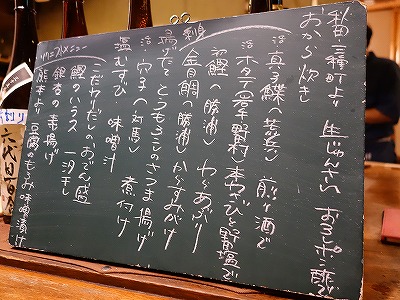 秋田三種町より 生じゅんさい おろしポン酢で
おから炊き
活 真子鰈 煎り酒で
活 ホタテ 岩手 野村 本わさび 野塩で
刺身
初鰹 勝浦 わらあぶり
金目鯛 勝浦 からすみがけ
揚げたて とうもろこしのさつま揚げ
活 穴子 対馬 煮付け
塩むすび 味噌汁
こだわりだしのおでん盛
鰹のハラス 一汐干し
銀杏の素揚げ
熊本より 豆腐のもろみ味噌漬け
六代目